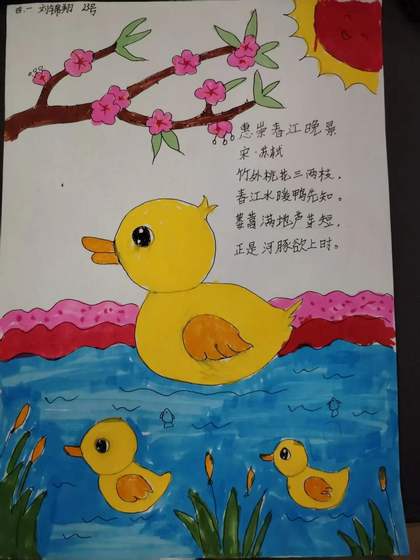 四.一 刘锦翔 23号
惠崇春江晚景
宋·苏轼
竹外桃花三两枝，
春江水暖鸭先知。
蒌蒿满地芦芽短，
正是河豚欲上时。